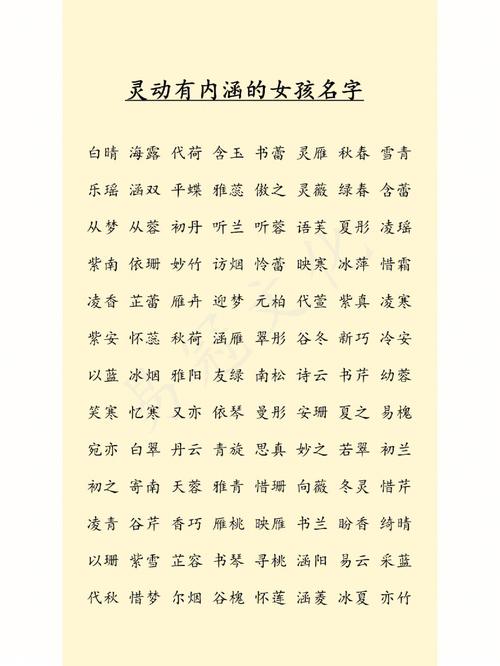 灵动有内涵的女孩名字
白晴 海露 代荷 含玉 书蕾 灵雁 秋春 雪青
乐瑶 涵双 平蝶 雅蕊 傲之 灵薇 绿春 含蕾
从梦 从蓉 初丹 听兰 听蓉 语芙 夏彤 凌瑶
紫南 依珊 妙竹 访烟 怜蕾 映寒 冰萍 惜霜
凌香 芷蕾 雁卉 迎梦 元柏 代萱 紫真 凌寒
紫安 怀蕊 秋荷 涵雁 翠彤 谷冬 新巧 冷安
以蓝 冰烟 雅阳 友绿 南松 诗云 书芹 幼蓉
笑寒 忆寒 又亦 依琴 曼彤 安珊 夏之 易槐
宛亦 白翠 丹云 青旋 思真 妙之 若翠 初兰
初之 寄南 天蓉 雅青 惜珊 向薇 冬灵 惜芹
凌青 谷芹 香巧 雁桃 映雁 书兰 盼香 绮晴
以珊 紫雪 芷容 书琴 寻桃 涵阳 易云 采蓝
代秋 惜梦 尔烟 谷槐 怀莲 涵菱 冰夏 亦竹